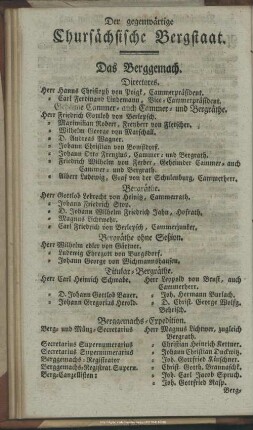 Der gegenwärtige
Churfächsische Bergstaat.
Das Berggemach.
Directores.
Herr Hanns Christoph von Poigk, Cammerpräsident.
Carl Ferdinand Lindemann, Vice-Cammerpräsident.
Geheime Cammer- auch Cammer- und Bergräthe.
Herr Friedrich Gottlob von Berlepsch.
Maximilian Robert, Freyherr von Fletscher.
Wilhelm George von Marschall.
D. Andreas Wagner.
Johann Christian von
Johann Otto Frenzius, Cammer- und Bergrath.
Friedrich Wilhelm von Ferber, Geheimder Cammer- auch
Cammer- und Bergrath.
Albert Ludewig, Graf von der Schulenburg, Cammerherr.
Bergräthe.
Herr Gottlob Lebrecht von Heinitz, Cammerrath.
Johann Friedrich
D. Johann Wilhelm Friedrich Jahn, Hofrath.
Magnus Lichtwehr.
Carl Friedrich von Berlepsch, Cammerjunker.
Bergräthe ohne Session.
Herr Wilhelm Adler von Gärtner.
Ludewig Ehregott von Burgsdorf.
Johann George von Wichmannshausen.
Titular-Bergräthe.
Herr Carl Heinrich Schwabe. Herr Leopold von Beust, auch
Cammerherr.
D. Johann Gottlob Bauer. Joh. Hermann Barlach.
Johann Gregorius Herold. D. Christ. George Wolfg.
Behrisch.
Berggemachs-Expedition.
Berg- und Münz-Secretarius Herr Magnus Lichtwer, zugleich
Bergrath.
Secretarius Supernumerarius Christian Heinrich Kertner.
Secretarius Supernumerarius Johann Christian Duckwitz.
Berggemachs-Registrator Joh. Gottfried Kürschner.
Berggemachs-Registrat. Supern. Christ. Gotth. Brannaschk.
Berg-Canzellisten: Joh. Carl Jacob Spruch.
Joh. Gottfried Rasp.
Berg-